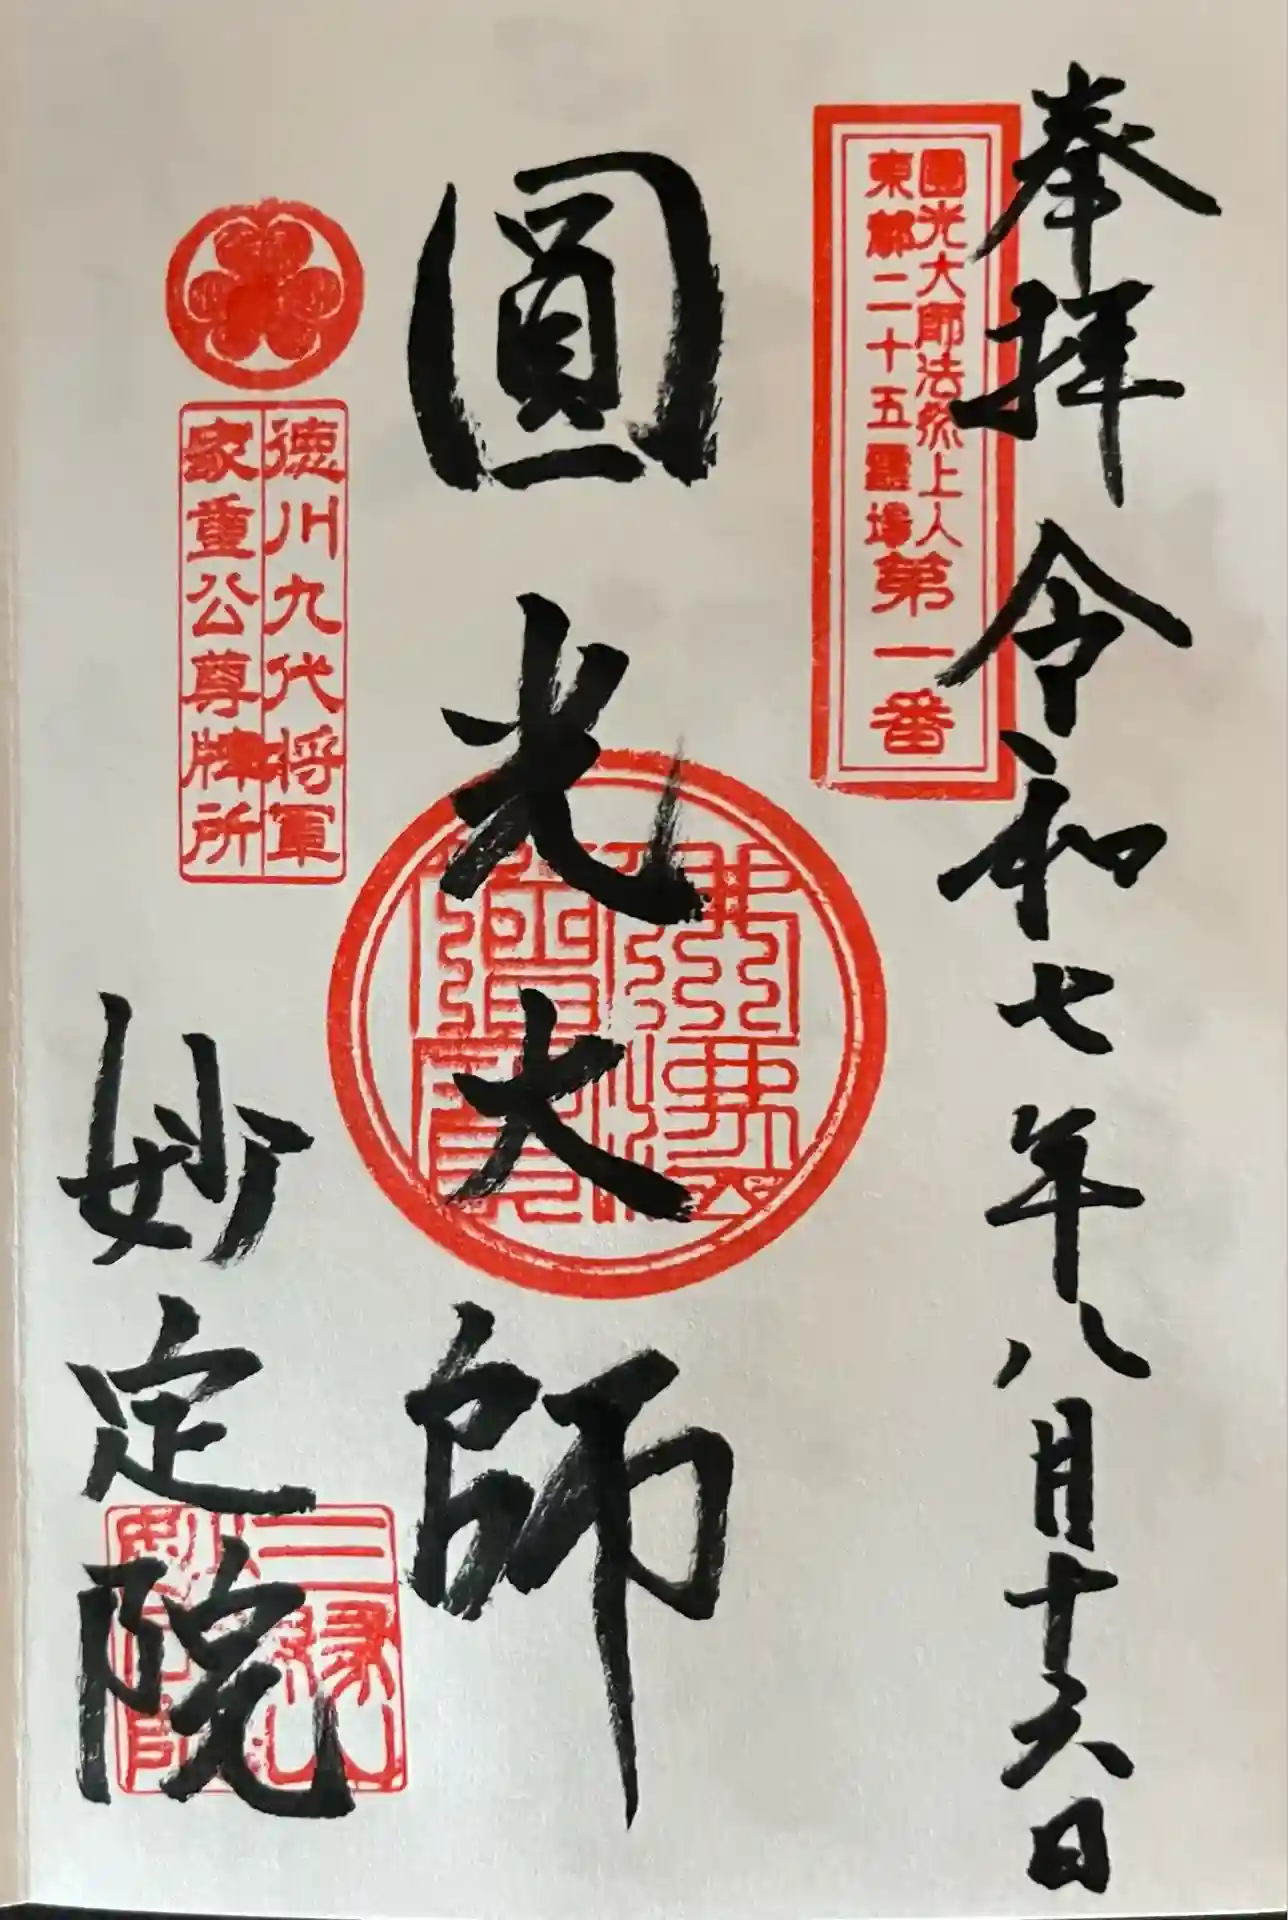 奉拝 令和七年八月十六日
圓光大師法然上人
東都二十五霊場
第一番
圓光大師
佛法僧寶
徳川九代将軍
家重公尊牌所
妙定院
三縁山
妙定院